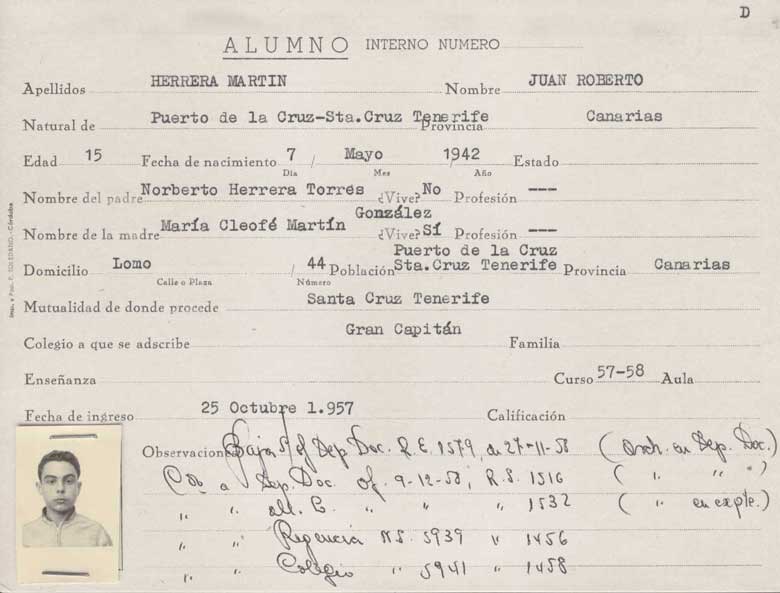 D
ALUMNO INTERNO NUMERO
Apellidos HERRERA MARTIN Nombre JUAN ROBERTO
Natural de Puerto de la Cruz-Sta.Cruz Tenerife Provincia Canarias
Edad 15 Fecha de nacimiento 7 / Mayo 1942 Estado
Dia Mes Año
Nombre del padre Norberto Herrera Torres ¿Vive? No Profesión ---
Nombre de la madre María Cleofé Martín González ¿Vive? Sí Profesión ---
Domicilio Lomo / 44 Población Puerto de la Cruz Sta.Cruz Tenerife Provincia Canarias
Calle o Plaza Número
Mutualidad de donde procede Santa Cruz Tenerife
Colegio a que se adscribe Gran Capitán Familia
Enseñanza Curso 57-58 Aula
Fecha de ingreso 25 Octubre 1.957 Calificación
Observaciones Baja s/of Dep. Doc. R.E. 1579, de 27-11-58 (Arch. en Dep. Doc.)
a Dep. Doc. of. 9-12-58, R.S. 1516 ( " " " )
" " " " 1532 ( " en expte.)
" " Regencia N.S. 5939 " 1456
" " Colegio " 5941 " 1458